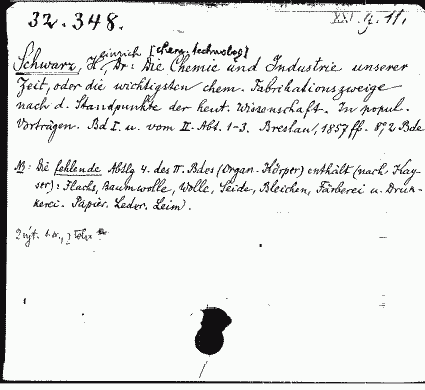 32.348. XXI. g. 11.
Schwarz, Heinrich [chem. technolog] Dr: Die Chemie und Industrie unserer
Zeit, oder die wichtigsten chem. Fabrikationszweige
nach d. Standpunkte der heut. Wissenschaft. In popul.
Vorträgen. Bd I. u. vom II. Abt. 1-3. Breslau, 1857 ff. 8°, 2 Bde
NB: Die fehlende Abtlg 4. des II. Bdes (Organ. Körper) enthält (nach Kay-
ser): Flachs, Baumwolle, Wolle, Seide, Bleichen, Färberei u. Druk-
kerei. Papier. Leder. Leim).